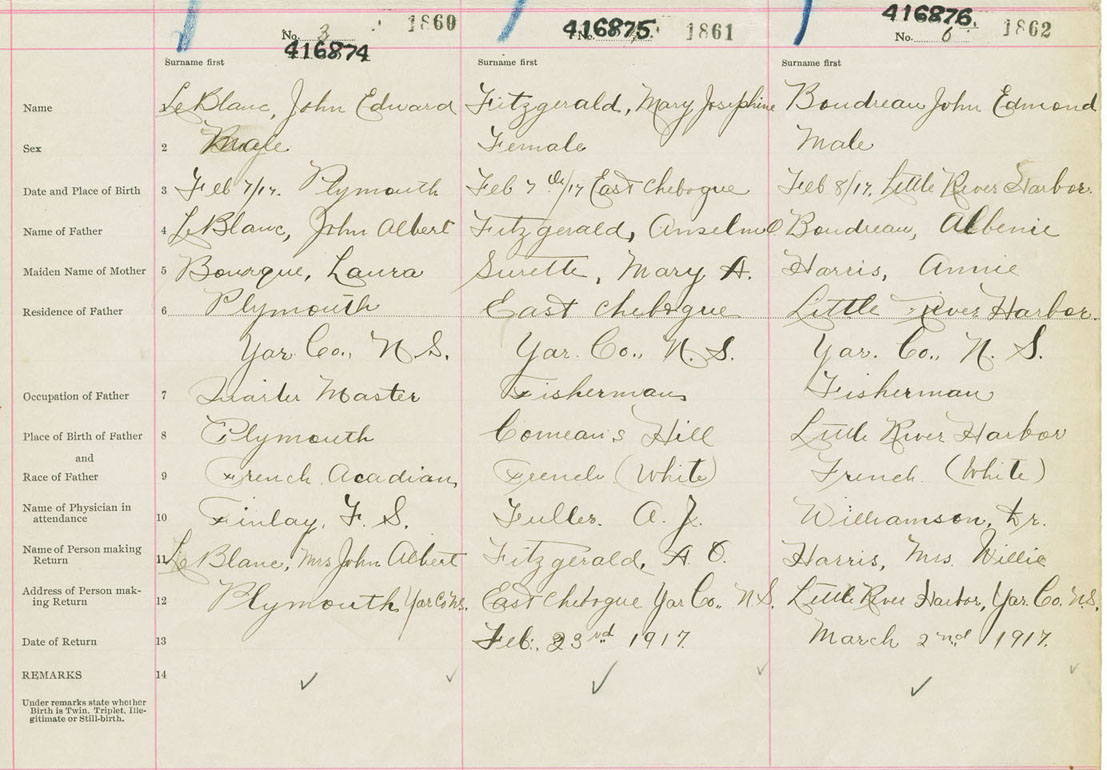 416876
No. 3 1860 416875 No. 1861 No. 6 1862
416874
Surname first Surname first Surname first
Name LeBlanc, John Edward Fitzgerald, Mary Josephine Boudreau John Edmond
Sex 2 Male Female Male
Date and Place of Birth 3 Feb 7/17. Plymouth Feb 7th/17 East Chebogue Feb 8/17, Little River Harbor.
Name of Father 4 LeBlanc, John Albert Fitzgerald, Anselme Boudreau, Albenie
Maiden Name of Mother 5 Bourque, Laura Surette, Mary A. Harris, Annie
Residence of Father 6 Plymouth East Chebogue Little River Harbor.
Yar. Co., N. S. Yar. Co., N. S. Yar. Co., N. S.
Occupation of Father 7 Quarter Master Fisherman Fisherman
Place of Birth of Father 8 Plymouth Comeau's Hill Little River Harbor
and
Race of Father 9 French Acadian French (White) French (White)
Name of Physician in
attendance 10 Finlay, F. S. Fuller. A. J. Williamson, Dr.
Name of Person making
Return 11 LeBlanc, Mrs John Albert Fitzgerald, A. O. Harris, Mrs. Willie
Address of Person mak-
ing Return 12 Plymouth Yar Co N.S. East Chebogue Yar Co., N.S. Little River Harbor, Yar. Co. N.S.
Date of Return 13 Feb. 23rd 1917. March 2nd 1917.
REMARKS 14 ✓ ✓ ✓ ✓ ✓ ✓
Under remarks state whether
Birth is Twin, Triplet, Ille-
gitimate or Still-birth.